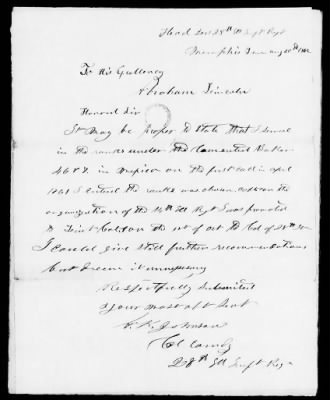 Head Qrs 28th Ill Inft Regt
Memphis Tenn Aug 20th 1862
To His Excellency
Abraham Lincoln
Honored Sir
It may be proper to state that I served
in the ranks under the lamented Baker
46 & 7 in Mexico on the first call in april
1861 I entered the ranks was chosen on the
organization of the 14th Ill Regt I was promoted
to Lieut Col on the 1st of oct to Col of 28th Ill
I could give still further recommendations
but deem it unnecessary
Respectfully submitted
your most obt Servt
A. K. Johnson
Col Comdg
28th Ill Inft Regt